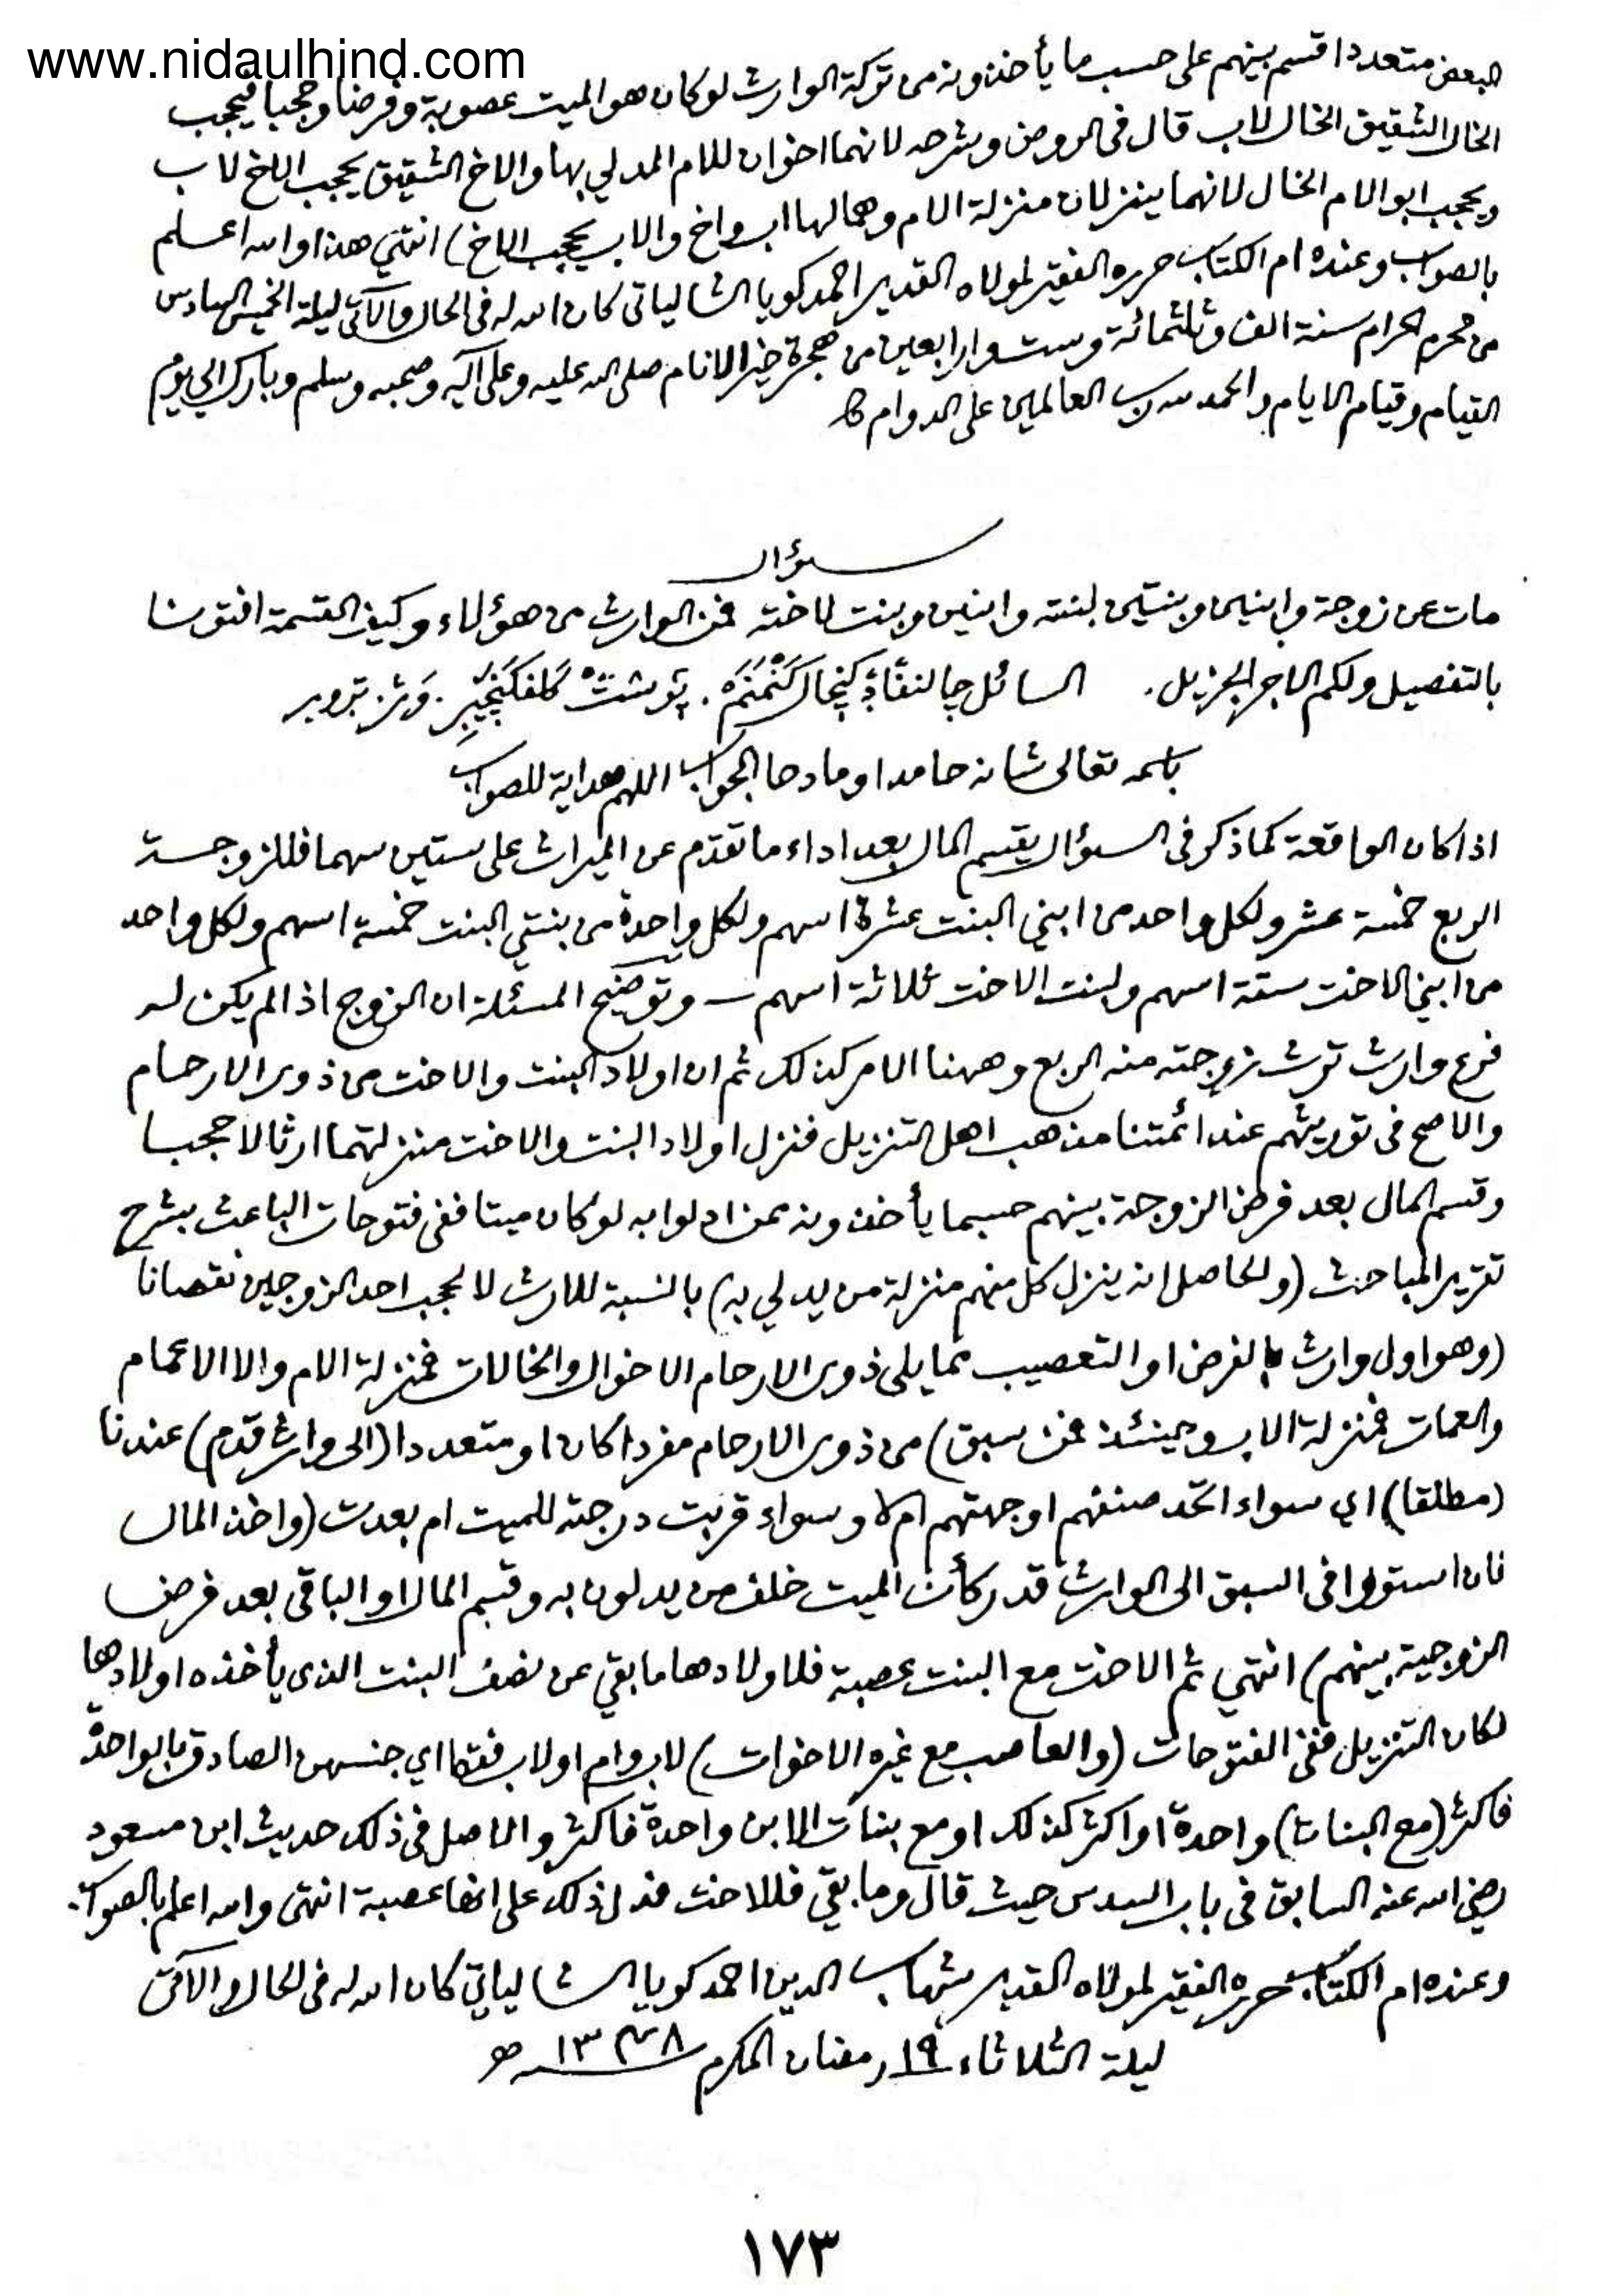 www.nidaulhind.com
البعض متعددا قسم بينهم على حسب ما يأخذونه من تركة الوارث لو كان هو الميت عصوبة وفرضا وحجبا فيحجب
الخال الشقيق الخال لاب قال في الروض وشرحه لانهما اخوان للام المدلي بها والاخ الشقيق يحجب الاخ لاب
ويحجب ابو الام الخال لانهما ينزلان منزلة الام وهما لها اب واخ والاب يحجب الاخ) انتهي هذا والله اعلم
بالصواب وعنده ام الكتاب حرره الفقير لمولاه القدير احمد كويا الشالياتي كان الله له في الحال والآتي ليلة الخميس السادس
من محرم الحرام سنة الف وثلثمائة وست واربعين من هجرة خير الانام صلى الله عليه وعلى آله وصحبه وسلم وبارك الي يوم
القيام وقيام الايام والحمد لله رب العالمين على الدوام
سؤال
مات عن زوجة وابنين وبنتين لبنته وابنين وبنت لاخته فمن الوارث من هؤلاء وكيف القسمة افتونا
بالتفصيل ولكم الاجر الجزيل. السائل
باسمه تعالى شانه حامدا ومادحا الجواب اللهم هداية للصواب
اذا كان الواقعة كما ذكر في السؤال يقسم المال بعد اداء ما تقدم عن الميراث على ستين سهما فللزوجة
الربع خمسة عشر ولكل واحد من ابني البنت عشرة اسهم ولكل واحدة من بنتي البنت خمسة اسهم ولكل واحد
من ابني الاخت ستة اسهم ولبنت الاخت ثلاثة اسهم — وتوضيح المسئلة ان الزوج اذا لم يكن له
فرع وارث ترث زوجته منه الربع وههنا الامر كذلك ثم ان اولاد البنت والاخت من ذوي الارحام
والاصح في توريثهم عند ائمتنا مذهب اهل التنزيل فنزل اولاد البنت والاخت منزلتهما ارثا لا حجبا
وقسم المال بعد فرض الزوجة بينهم حسبما يأخذونه ممن ادلوا به لو كان ميتا ففي فتوحات الباعث بشرح
تقرير المباحث (والحاصل انه ينزل كل منهم منزلة من يدلي به) بالنسبة للارث لا لحجب احد الزوجين نقصانا
(وهو اول وارث بالفرض او التعصيب مما يلي ذوي الارحام الا الاخوال والخالات فمنزلة الام والا الاعمام
والعمات فمنزلة الاب وحينئذ فمن سبق) من ذوي الارحام مفردا كان او متعددا (الى وارث قدم) عندنا
(مطلقا) اي سواء اتحد صنفهم او جهتهم ام لا وسواء قربت درجته للميت ام بعدت (واخذ المال
فان استووا في السبق الى الوارث قدر كأن الميت خلف من يدلون به وقسم المال او الباقي بعد فرض
الزوجية بينهم) انتهي ثم الاخت مع البنت عصبة فلاولادها ما بقي عن نصف البنت الذي يأخذه اولادها
لكان التنزيل ففي الفتوحات (والعاصب مع غيره الاخوات) لاب وام او لاب فقط اي جنسهن الصادق بالواحدة
فاكثر (مع البنات) واحدة او اكثر كذلك او مع بنات الابن واحدة فاكثر والاصل في ذلك حديث ابن مسعود
رضي الله عنه السابق في باب السدس حيث قال وما بقي فللاخت فدل ذلك على انها عصبة انتهى والله اعلم بالصواب.
وعنده ام الكتاب حرره الفقير لمولاه القدير شهاب الدين احمد كويا الشالياتي كان الله له في الحال والآتي
ليلة الثلاثاء ١٩ رمضان المكرم ١٣٤٨ هـ
١٧٣